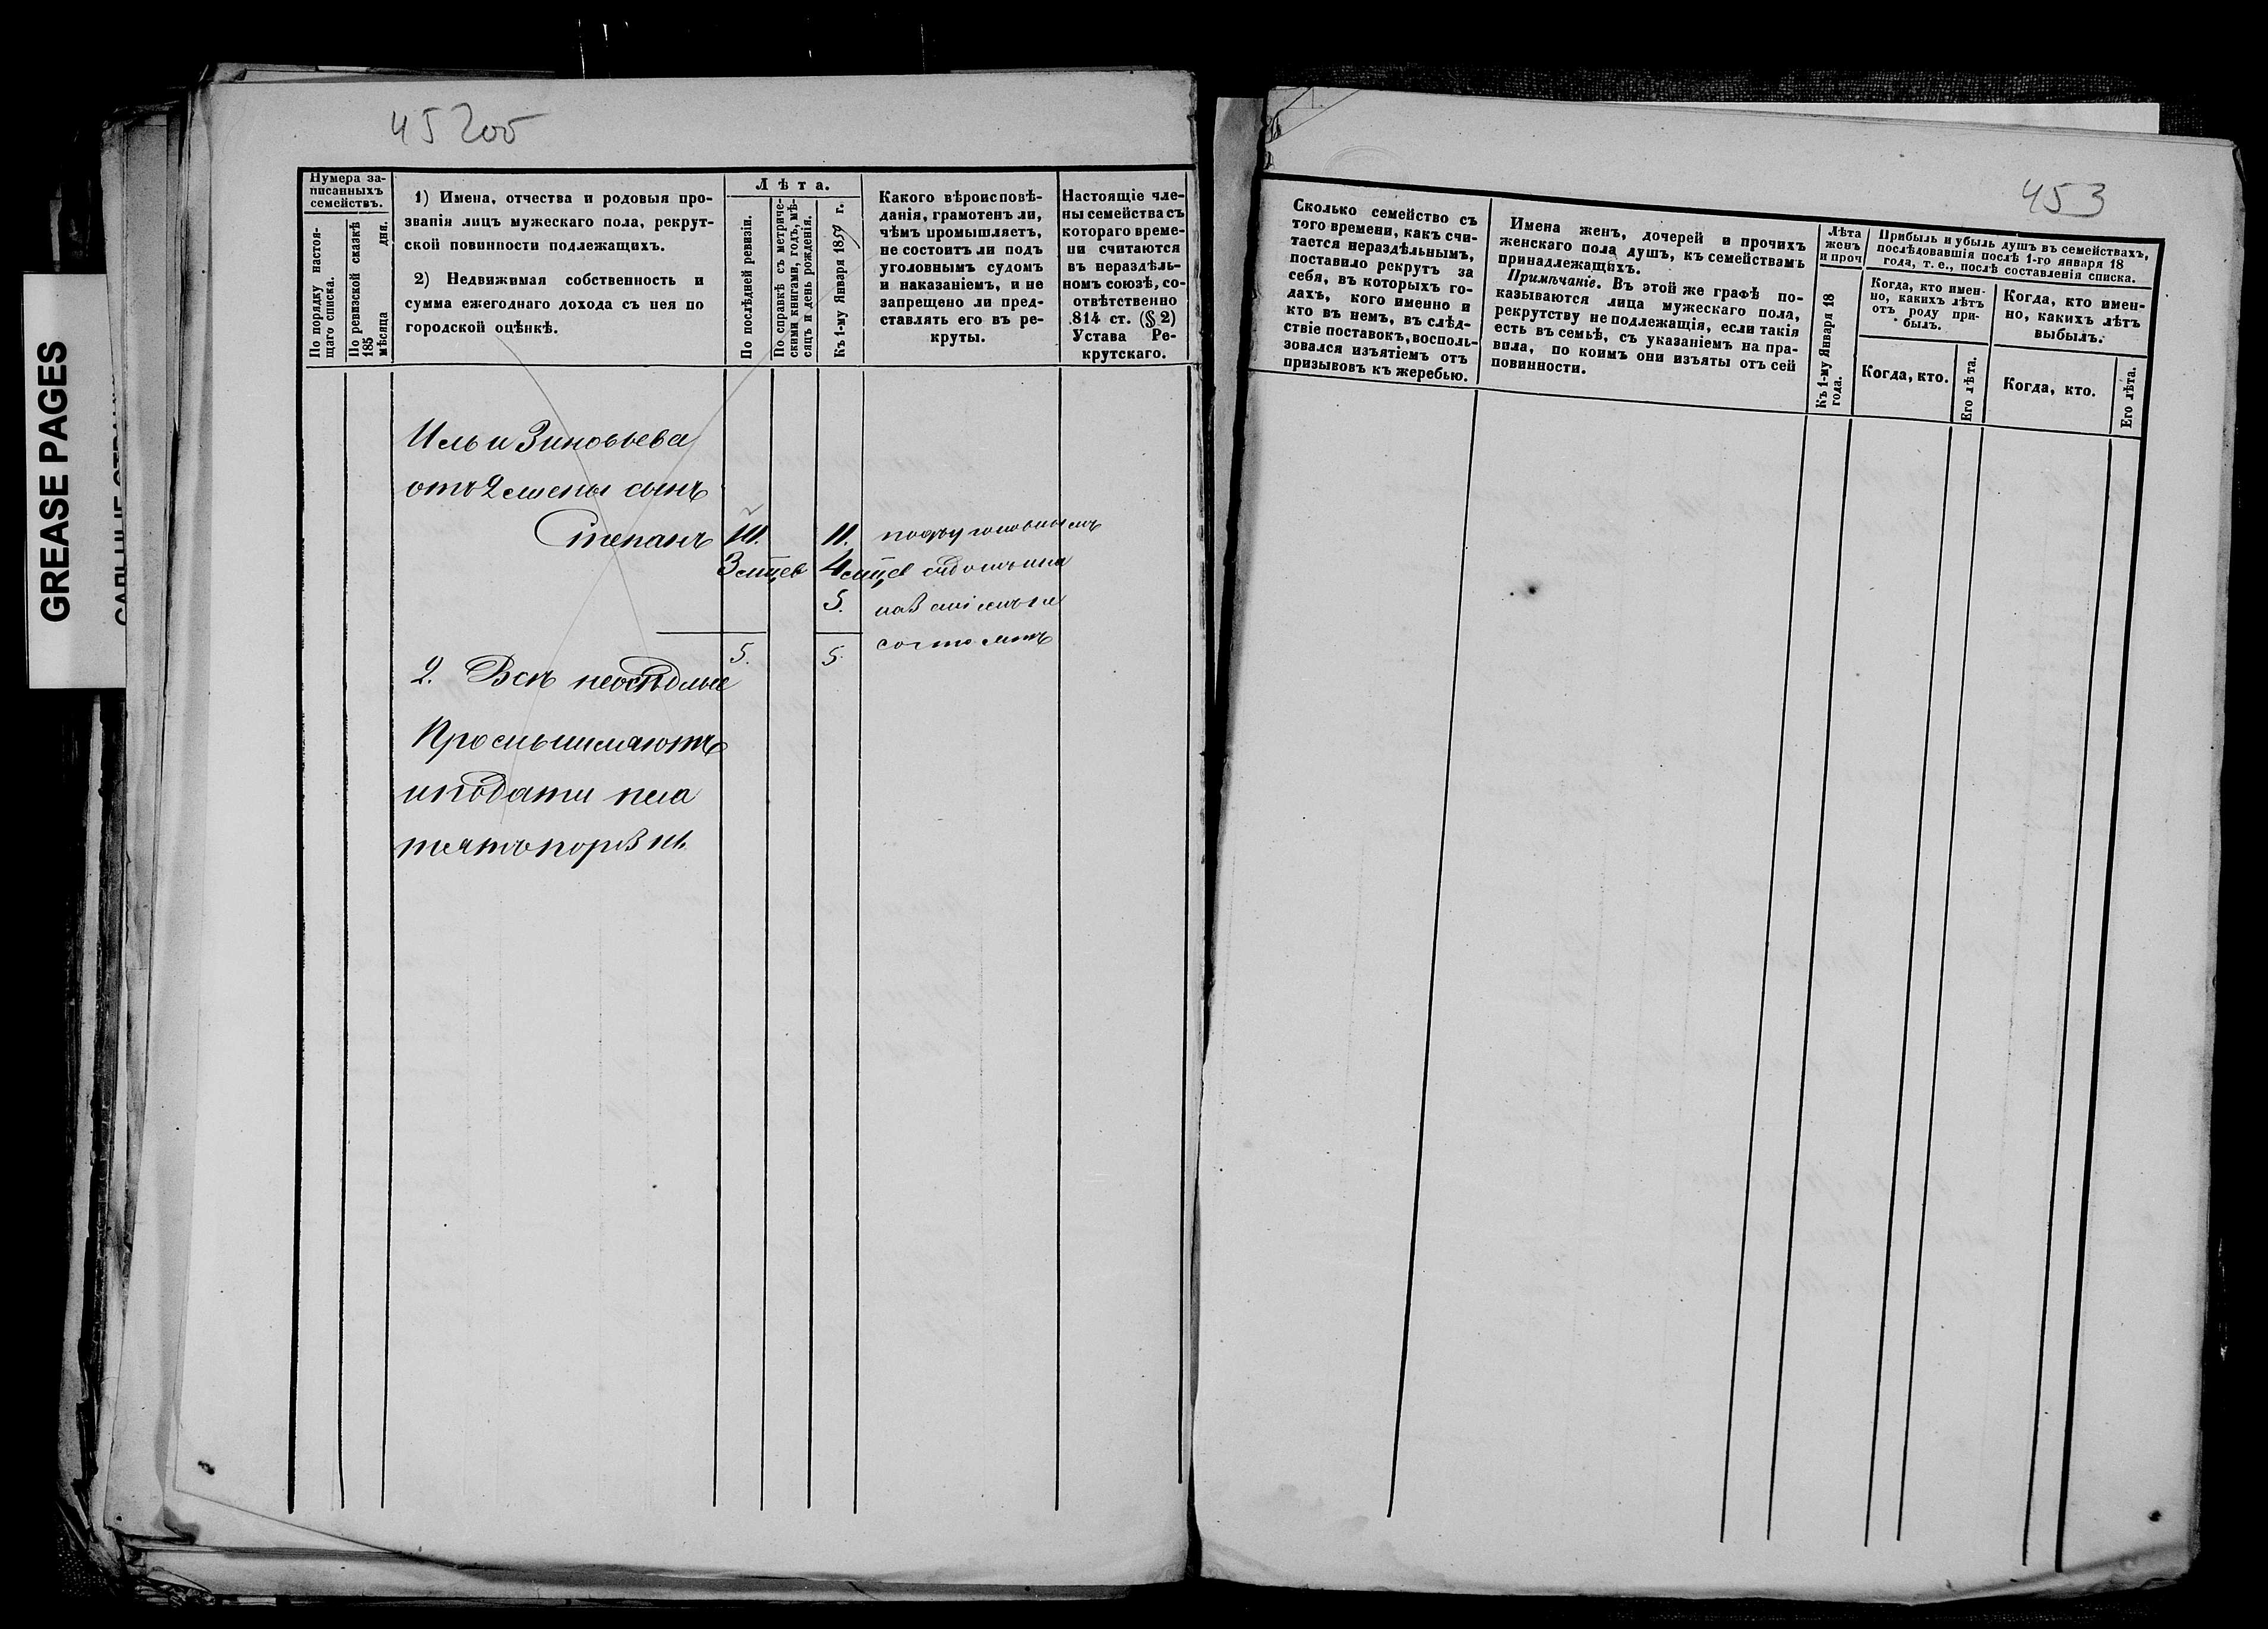 GREASE PAGES
45 2об
Нумера за-
писанныхъ
семействъ.
По порядку настоя-
щаго списка.
По ревизской сказкѣ
185
мѣсяца дня.
1) Имена, отчества и родовыя про-
званія лицъ мужескаго пола, рекрут-
ской повинности подлежащихъ.
2) Недвижимая собственность и
сумма ежегоднаго дохода съ нея по
городской оцѣнкѣ.
Лѣта.
По послѣдней ревизіи.
По справкѣ съ метриче-
скими книгами, годъ, мѣ-
сяцъ и день рожденія.
Къ 1-му Января 1859 г.
Какого вѣроисповѣ-
данія, грамотенъ ли,
чѣмъ промышляетъ,
не состоитъ ли подъ
уголовнымъ судомъ
и наказаніемъ, и не
запрещено ли пред-
ставлять его въ ре-
круты.
Настоящіе чле-
ны семейства съ
котораго време-
ни считаются
въ нераздѣль-
номъ союзѣ, со-
отвѣтственно
814 ст. (§ 2)
Устава Ре-
крутскаго.
Ильи Зиновьева
отъ 2 жены сынъ
Степанъ 11. подъ уголовнымъ
3 мцев 4 мцев судомъ и на
5. казаніемъ не
состоитъ
5. 5.
2. Всѣ неосѣдлые
Промышляютъ
и подати пла
тятъ порознь
453
Сколько семейство съ
того времени, какъ счи-
тается нераздѣльнымъ,
поставило рекрутъ за
себя, въ которыхъ го-
дахъ, кого именно и
кто въ немъ, въ слѣд-
ствіе поставокъ, восполь-
зовался изъятіемъ отъ
призывовъ къ жеребью.
Имена женъ, дочерей и прочихъ
женскаго пола душъ, къ семействамъ
принадлежащихъ.
Примѣчаніе. Въ этой же графѣ по-
казываются лица мужескаго пола,
рекрутству не подлежащія, если такія
есть въ семьѣ, съ указаніемъ на пра-
вила, по коимъ они изъяты отъ сей
повинности.
Лѣта
женъ
и проч
Къ 1-му Января 18
года.
Прибыль и убыль душъ въ семействахъ,
послѣдовавшія послѣ 1-го января 18
года, т. е., послѣ составленія списка.
Когда, кто имен-
но, какихъ лѣтъ
отъ роду при-
былъ.
Когда, кто.
Его лѣта.
Когда, кто имен-
но, какихъ лѣтъ
выбылъ.
Когда, кто.
Его лѣта.